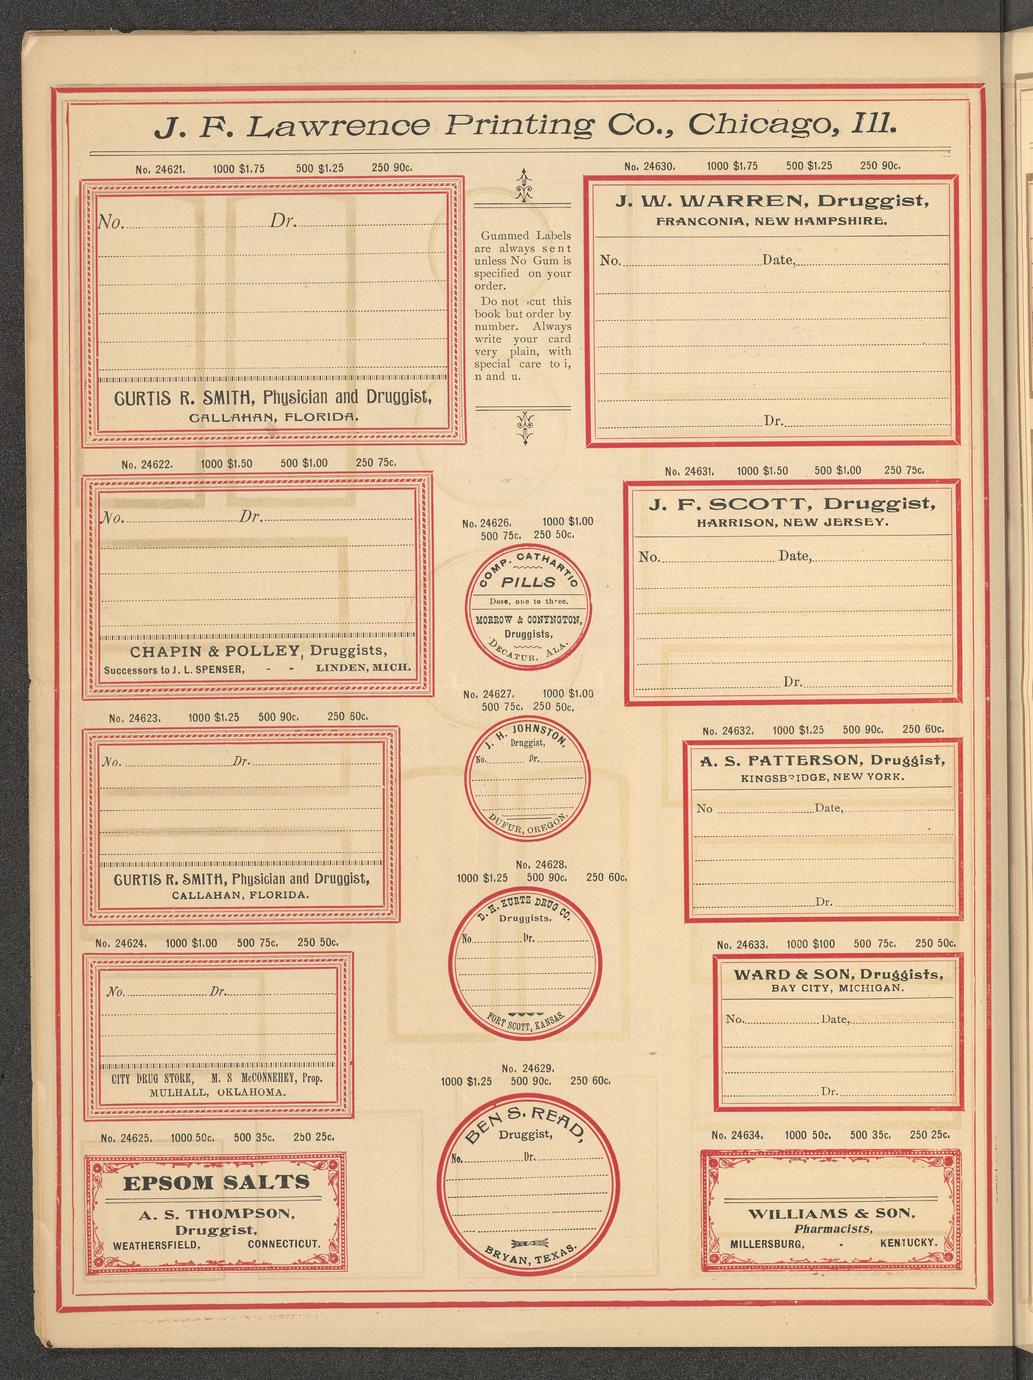 J. F. Lawrence Printing Co., Chicago, Ill.
No. 24621. 1000 $1.75 500 $1.25 250 90c.
No. Dr.
CURTIS R. SMITH, Physician and Druggist,
CALLAHAN, FLORIDA.
No. 24622. 1000 $1.50 500 $1.00 250 75c.
No. Dr.
CHAPIN & POLLEY, Druggists,
Successors to J. L. SPENSER, - - LINDEN, MICH.
No. 24623. 1000 $1.25 500 90c. 250 60c.
No. Dr.
CURTIS R. SMITH, Physician and Druggist,
CALLAHAN, FLORIDA.
No. 24624. 1000 $1.00 500 75c. 250 50c.
No. Dr.
CITY DRUG STORE, M. S McCONNEHEY, Prop.
MULHALL, OKLAHOMA.
No. 24625. 1000 50c. 500 35c. 250 25c.
EPSOM SALTS
A. S. THOMPSON,
Druggist,
WEATHERSFIELD, CONNECTICUT.
Gummed Labels
are always sent
unless No Gum is
specified on your
order.
Do not cut this
book but order by
number. Always
write your card
very plain, with
special care to i,
n and u.
No. 24626. 1000 $1.00
500 75c. 250 50c.
COMP. CATHARTIC
PILLS
Dose, one to three.
MORROW & CONYNGTON,
Druggists,
DECATUR, ALA.
No. 24627. 1000 $1.00
500 75c. 250 50c.
J. H. JOHNSTON,
Druggist,
No. Dr.
DUFUR, OREGON.
No. 24628.
1000 $1.25 500 90c. 250 60c.
D. H. KURTZ DRUG CO.
Druggists.
No. Dr.
FORT SCOTT, KANSAS.
No. 24629.
1000 $1.25 500 90c. 250 60c.
BEN S. READ,
Druggist,
No. Dr.
BRYAN, TEXAS.
No. 24630. 1000 $1.75 500 $1.25 250 90c.
J. W. WARREN, Druggist,
FRANCONIA, NEW HAMPSHIRE.
No. Date,
Dr.
No. 24631. 1000 $1.50 500 $1.00 250 75c.
J. F. SCOTT, Druggist,
HARRISON, NEW JERSEY.
No. Date,
Dr.
No. 24632. 1000 $1.25 500 90c. 250 60c.
A. S. PATTERSON, Druggist,
KINGSBRIDGE, NEW YORK.
No Date,
Dr.
No. 24633. 1000 $100 500 75c. 250 50c.
WARD & SON, Druggists,
BAY CITY, MICHIGAN.
No. Date,
Dr.
No. 24634. 1000 50c. 500 35c. 250 25c.
WILLIAMS & SON,
Pharmacists,
MILLERSBURG, - KENTUCKY.